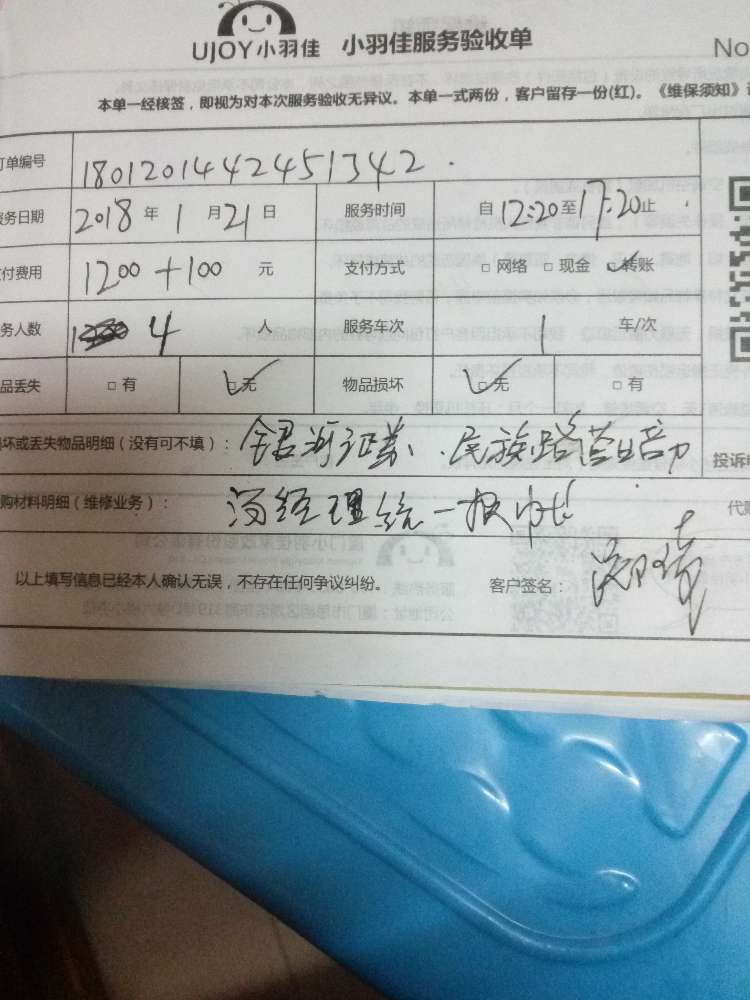 UJOY小羽佳 小羽佳服务验收单 No
本单一经核签，即视为对本次服务验收无异议。本单一式两份，客户留存一份(红)。《维保须知》
订单编号 18012014424451342
服务日期 2018 年 1 月 21 日 服务时间 自 12:20 至 17:20 止
支付费用 1200+100 元 支付方式 □ 网络 □ 现金 ☑ 转账
服务人数 4 人 服务车次 1 车/次
物品丢失 □ 有 ☑ 无 物品损坏 ☑ 无 □ 有
损坏或丢失物品明细（没有可不填）： 银河证券、民族路营业部 投诉
购材料明细（维修业务）： 汤经理统一报 代购
以上填写信息已经本人确认无误，不存在任何争议纠纷。 客户签名：